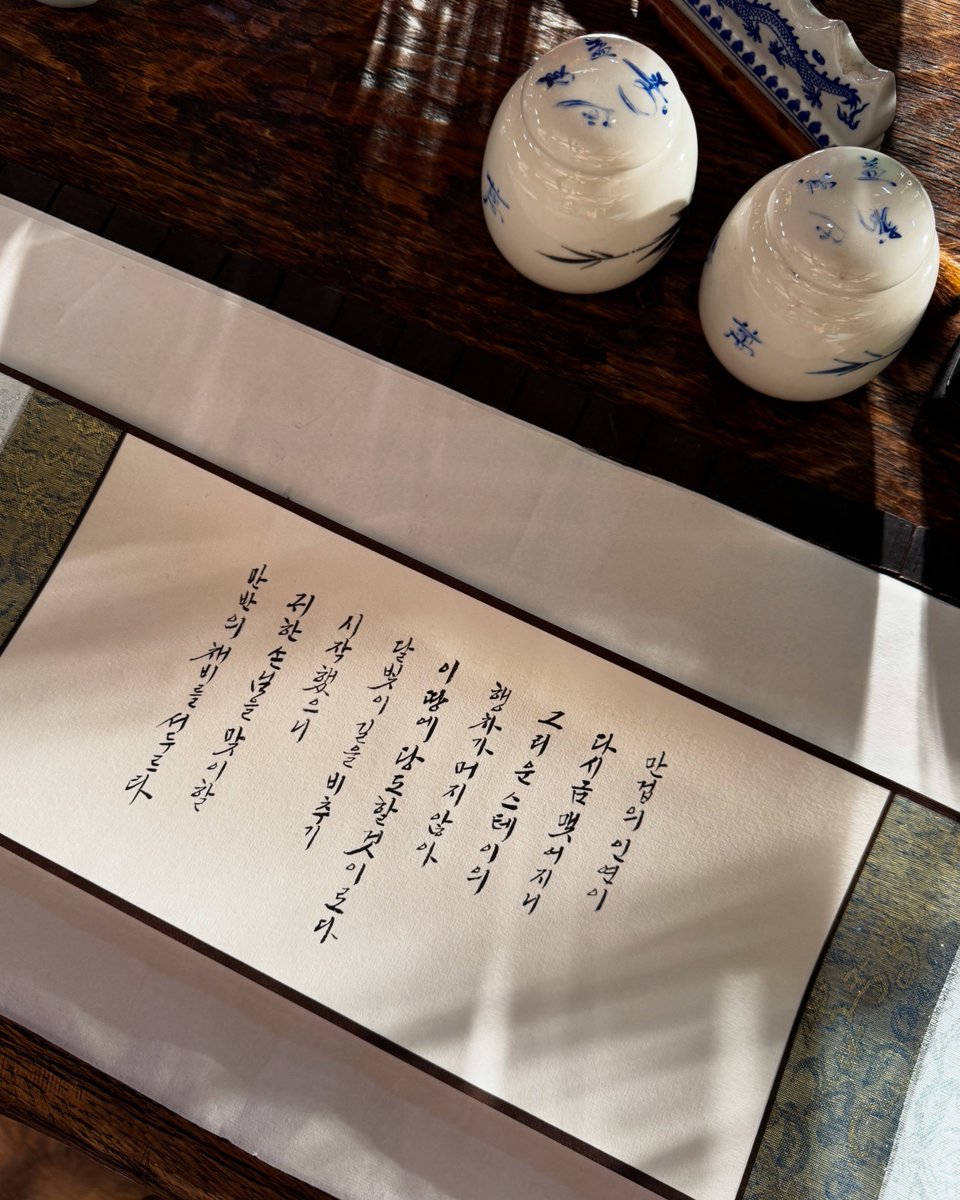 만겁의 인연이
다시금 맺어지니
그리운 스테이의
행차가 머지 않아
이 땅에 당도할 것이로다
달빛이 길을 비추기
시작했으니
귀한 손님을 맞이할
만반의 채비를 서두르라